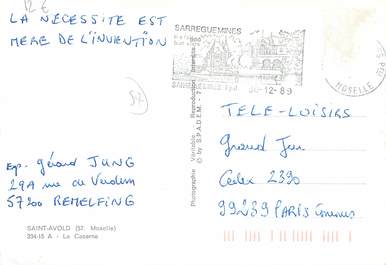 12 €
LA NECESSITE EST
MERE DE L'INVENTION
SARREGUEMINES
30-12-89
MOSELLE
57
TELE-LOISIRS
Grand Jeu
Cedex 2390
99239 PARIS Concours
Exp. Gérard JUNG
29A rue de Verdun
57200 REMELFING
SAINT-AVOLD (57. Moselle)
334-15 A - La Caserne
Photographie Véritable Reproduction Interdite
© by S.P.A.D.E.M. - 7